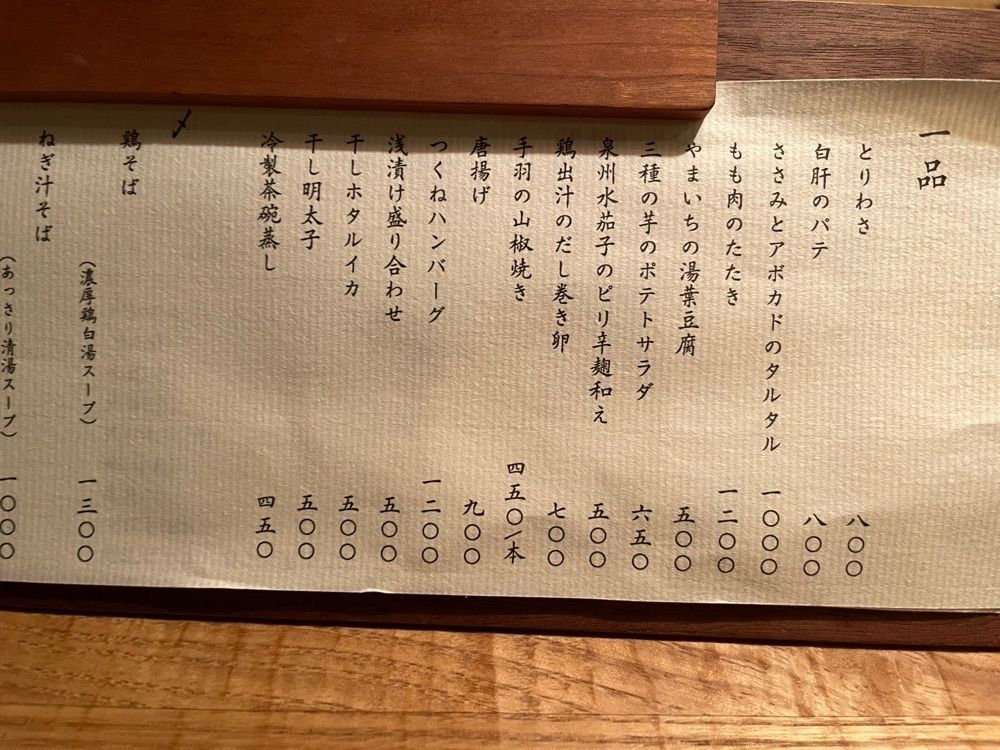 一品
とりわさ 八〇〇
白肝のパテ 八〇〇
ささみとアボカドのタルタル 一〇〇〇
もも肉のたたき 一二〇〇
やまいちの湯葉豆腐 五〇〇
三種の芋のポテトサラダ 六五〇
泉州水茄子のピリ辛麹和え 五〇〇
鶏出汁のだし巻き卵 七〇〇
手羽の山椒焼き 四五〇/本
唐揚げ 九〇〇
つくねハンバーグ 一二〇〇
浅漬け盛り合わせ 五〇〇
干しホタルイカ 五〇〇
干し明太子 五〇〇
冷製茶碗蒸し 四五〇
〆
鶏そば
（濃厚鶏白湯スープ） 一三〇〇
ねぎ汁そば
（あっさり清湯スープ） 一〇〇〇